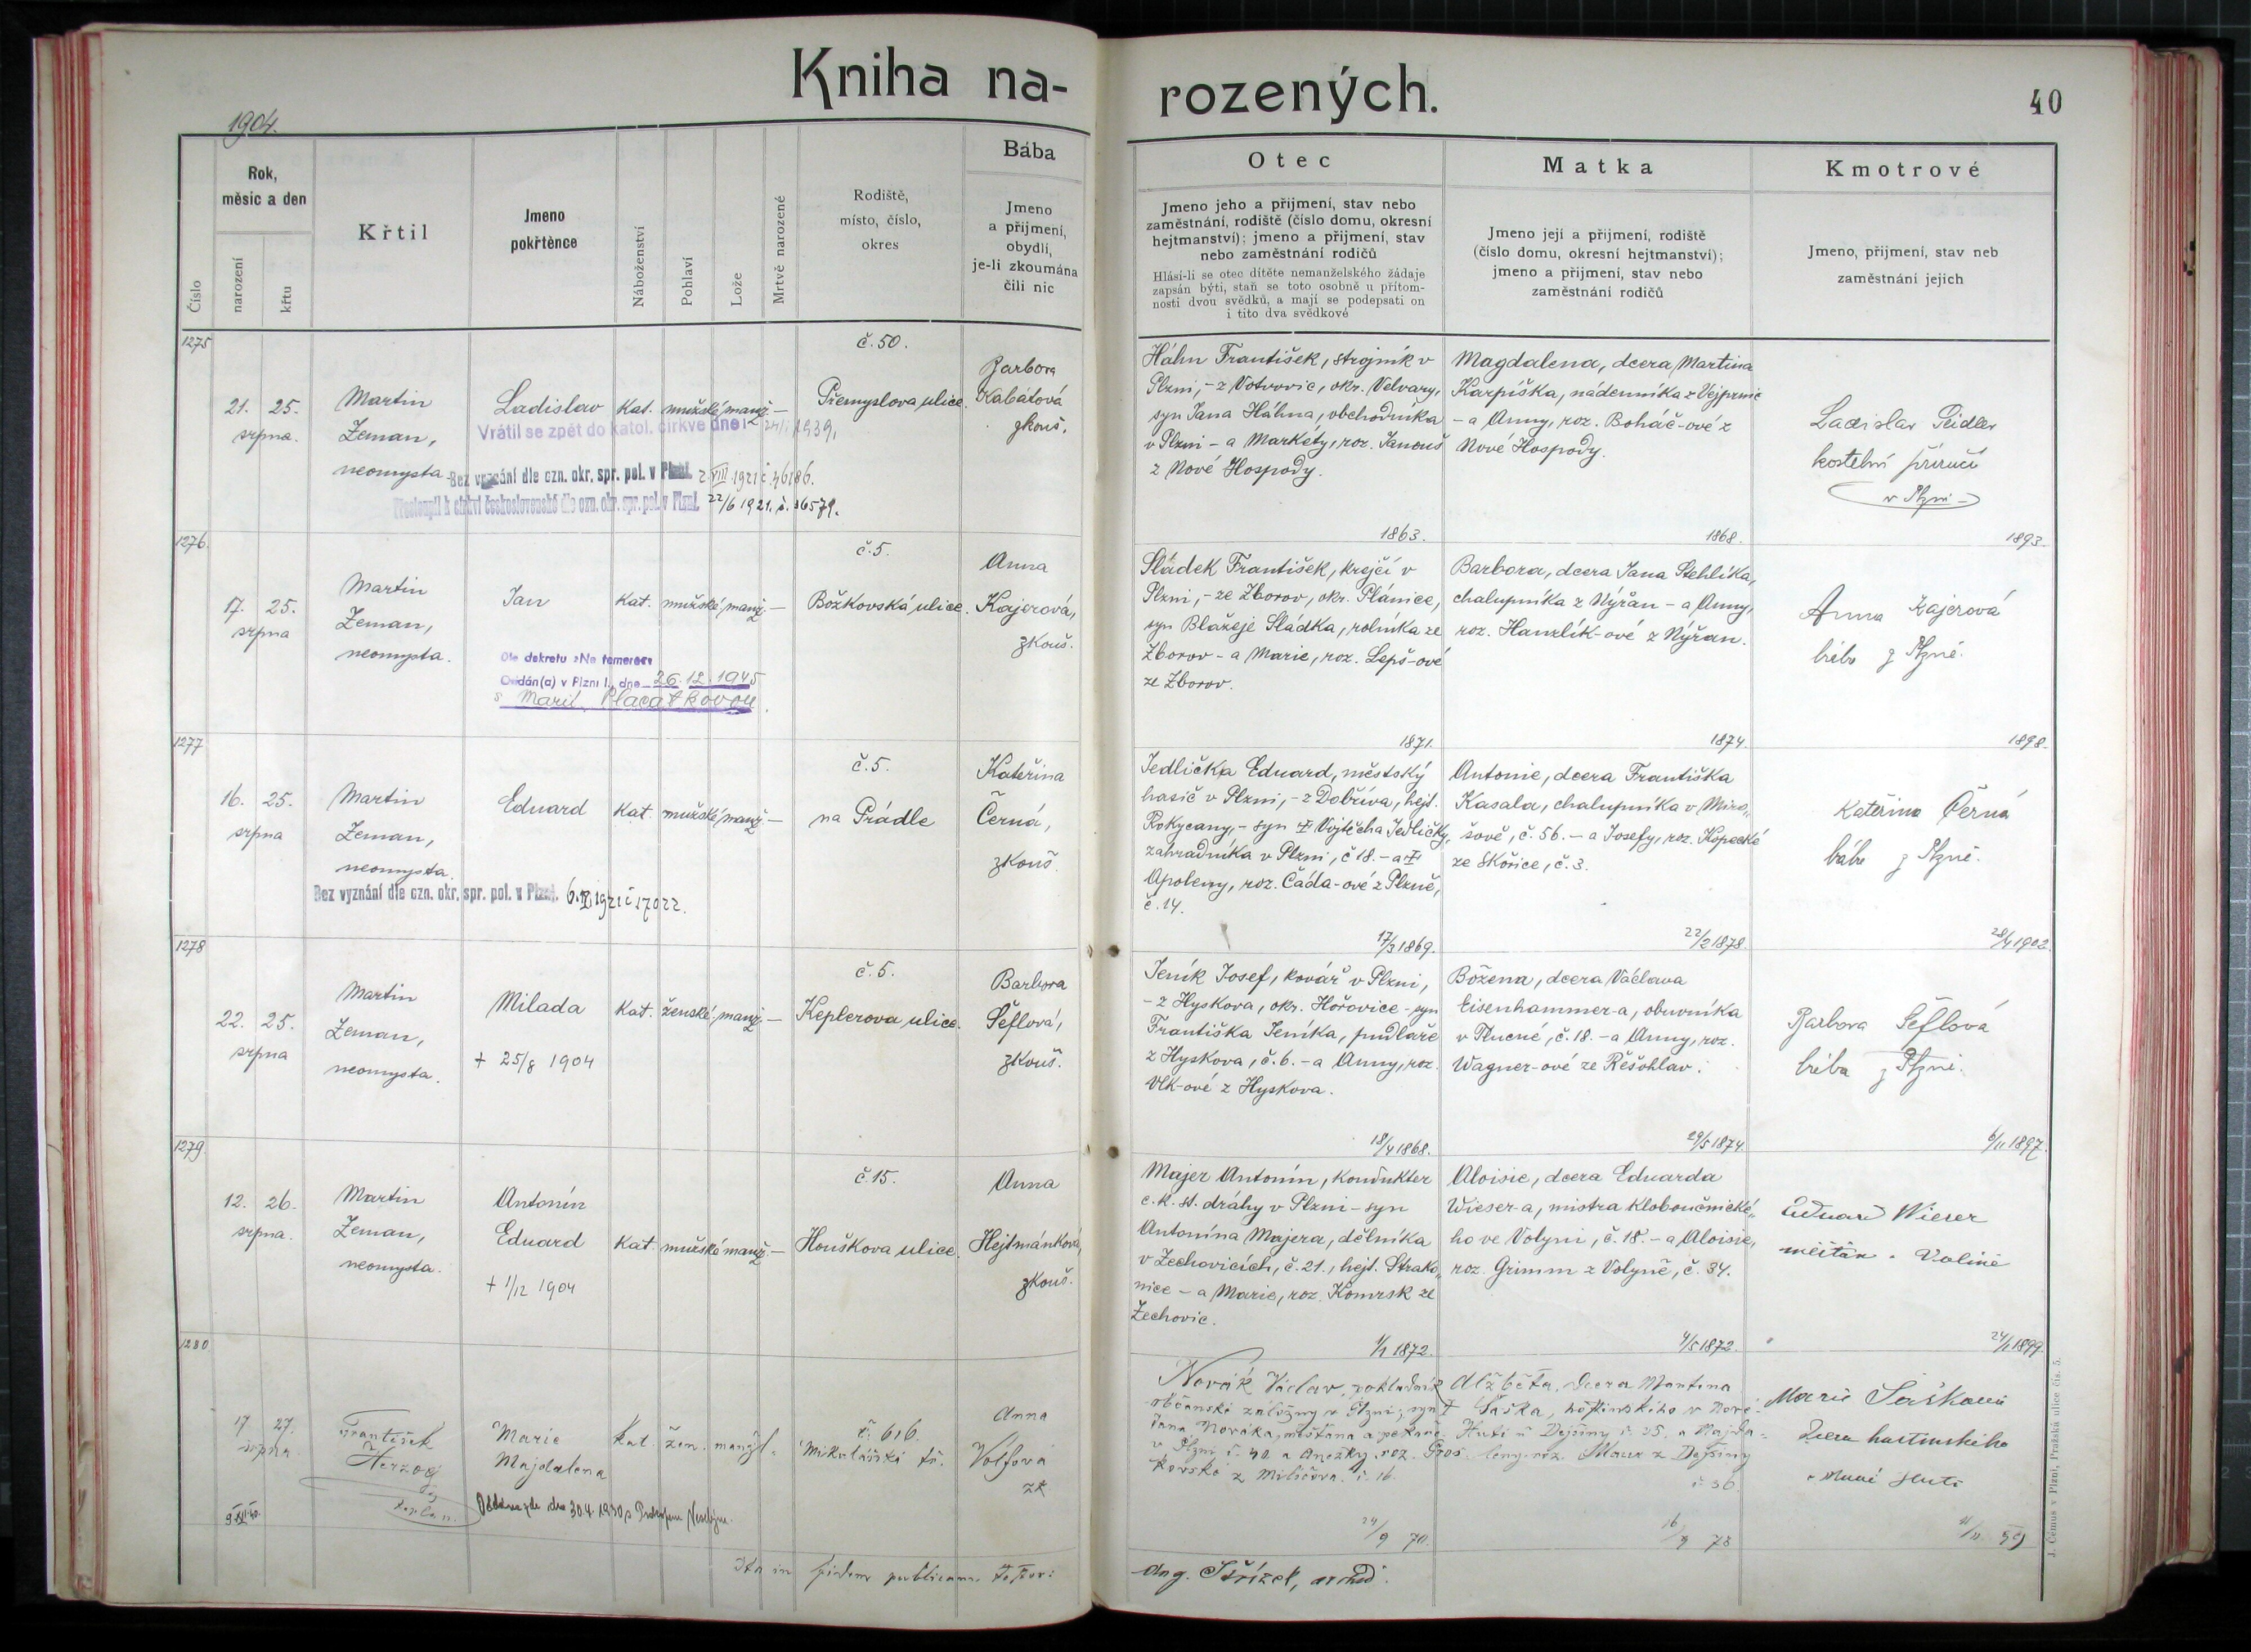 Kniha na-
rozených.
40
1904.
Číslo
Rok,
měsíc a den
narození
křtu
Křtil
Jmeno
pokřtěnce
Náboženství
Pohlaví
Lože
Mrtvě narozené
Rodiště,
místo, číslo,
okres
Bába
Jmeno
a přijmení,
obydlí,
je-li zkoumána
čili nic
Otec
Jmeno jeho a přijmení, stav nebo
zaměstnání, rodiště (číslo domu, okresní
hejtmanství); jmeno a přijmení, stav
nebo zaměstnání rodičů
Hlásí-li se otec dítěte nemanželského žádaje
zapsán býti, staň se toto osobně u přítom-
nosti dvou svědků, a mají se podepsati on
i tito dva svědkové
Matka
Jmeno její a přijmení, rodiště
(číslo domu, okresní hejtmanství);
jmeno a přijmení, stav nebo
zaměstnání rodičů
Kmotrové
Jmeno, přijmení, stav neb
zaměstnání jejich
1275
21. 25.
srpna.
Martin
Zeman,
neomysta
Ladislav
Kat. mužské manž. —
č. 50.
Přemyslova ulice.
Barbora
Kabátová
zkouš.
Vrátil se zpět do katol. církve dne 1939.
Bez vyznání dle ozn. okr. spr. pol. v Plzni. 2 VIII. 1921 č. 46186.
Přestoupil k církvi československé dle ozn. okr. spr. pol. v Plzni. 22/6 1921. č. 36579.
Háhn František, strojník v
Plzni, - z Votvovic, okr. Velvary,
syn Jana Háhna, obchodníka
v Plzni - a Markéty, roz. Janouš
z Nové Hospody.
1863.
Magdalena, dcera Martina
Karpíška, nádenníka z Vejprnic
- a Anny, roz. Boháč-ové z
Nové Hospody.
1868.
Ladislav Seidler
kostelní příručí
v Plzni
1893.
1276
17. 25.
srpna
Martin
Zeman,
neomysta.
Jan
Kat. mužské manž. —
č. 5.
Božkovská ulice.
Anna
Kajerová,
zkouš.
Dle dekretu »Ne temere«
Oddán(a) v Plzni I., dne 26. 12. 1945
s Marií Placatkovou.
Sládek František, krejčí v
Plzni, - ze Zborov, okr. Plánice,
syn Blažeje Sládka, rolníka ze
Zborov - a Marie, roz. Lepš-ové
ze Zborov.
1871.
Barbora, dcera Jana Stehlíka,
chalupníka z Nýřan - a Anny,
roz. Hanzlík-ové z Nýřan.
1874.
Anna Kajerová
bába z Plzně.
1898.
1277
16. 25.
srpna
Martin
Zeman,
neomysta.
Eduard
Kat. mužské manž. —
č. 5.
na Prádle
Kateřina
Černá,
zkouš.
Bez vyznání dle ozn. okr. spr. pol. v Plzni. 1921 č 17022.
Jedlička Eduard, městský
hasič v Plzni, - z Dobříva, hejt.
Rokycany, - syn † Vojtěcha Jedličky,
zahradníka v Plzni, č 18. - a †
Apoleny, roz. Čáda-ové z Plzně,
č. 14.
17/3 1869.
Antonie, dcera Františka
Kasala, chalupníka v Miro„
šově, č. 56. - a Josefy, roz. Kopecké
ze Skořice, č. 3.
22/2 1878
Kateřina Černá
bába z Plzně.
28/4 1902.
1278
22. 25.
srpna
Martin
Zeman,
neomysta.
Milada
† 25/8 1904
Kat. ženské manž. —
č. 5.
Keplerova ulice.
Barbora
Šeflová,
zkouš.
Jeník Josef, kovář v Plzni,
- z Hyskova, okr. Hořovice - syn
Františka Jeníka, pudlaře
z Hyskova, č. 6. - a Anny, roz.
Vlk-ové z Hyskova.
18/4 1868.
Božena, dcera Václava
Eisenhammer-a, obuvníka
v Tlucné, č. 18. - a Anny, roz.
Wagner-ové ze Řešohlav.
29/5 1874.
Barbora Šeflová
bába z Plzně.
6/11 1897.
1279
12. 26.
srpna.
Martin
Zeman,
neomysta.
Antonín
Eduard
† 1/12 1904
Kat. mužské manž. —
č. 15.
Houškova ulice.
Anna
Hejtmánková,
zkouš.
Majer Antonín, kondukter
c. k. st. dráhy v Plzni - syn
Antonína Majera, dělníka
v Zechovicích, č. 21., hejt. Strako„
nice - a Marie, roz. Komrsk ze
Zechovic.
1/1 1872.
Aloisie, dcera Eduarda
Wieser-a, mistra kloboučnické„
ho ve Volyni, č. 18. - a Aloisie,
roz. Grimm z Volyně, č. 34.
4/5 1872.
Eduard Wieser
měšťan
24/1 1899
1280
17 27.
srpna
František
Herzog
kaplan.
Marie
Majdalena
kat. žen. manžl.
č. 616.
Mikulášská tř.
Anna
Volfová
zk
Oddána zde dne 30.4.1930 s
Novák Václav, pokladník
občanské záložny v Plzni, syn †
Jana Nováka, měšťana a pekaře
v Plzni č. 40 a Anežky roz. Gros
kovské z Miličova. č. 16.
24/9 70.
Alžběta, dcera Martina
Šaška, hostinského v Nové
Huti u Dejšiny č. 25. a Majda-
leny roz. Maur z Dejšiny
č. 36
16/9 78
Marie Šašková
dcera hostinského
v Nové Huti
Ita in fidem publicam testor:
Aug. Střízek, archid.
J. Čemus v Plzni, Pražská ulice čís. 5.